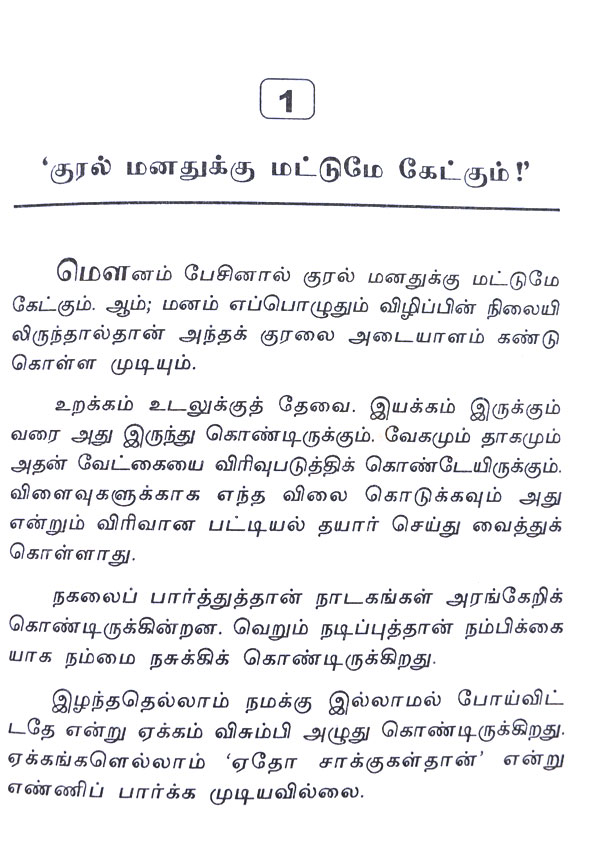 1
‘குரல் மனதுக்கு மட்டுமே கேட்கும்!’
மௌனம் பேசினால் குரல் மனதுக்கு மட்டுமே
கேட்கும். ஆம்; மனம் எப்பொழுதும் விழிப்பின் நிலையி
லிருந்தால்தான் அந்தக் குரலை அடையாளம் கண்டு
கொள்ள முடியும்.
உறக்கம் உடலுக்குத் தேவை. இயக்கம் இருக்கும்
வரை அது இருந்து கொண்டிருக்கும். வேகமும் தாகமும்
அதன் வேட்கையை விரிவுபடுத்திக் கொண்டேயிருக்கும்.
விளைவுகளுக்காக எந்த விலை கொடுக்கவும் அது
என்றும் விரிவான பட்டியல் தயார் செய்து வைத்துக்
கொள்ளாது.
நகலைப் பார்த்துத்தான் நாடகங்கள் அரங்கேறிக்
கொண்டிருக்கின்றன. வெறும் நடிப்புத்தான் நம்பிக்கை
யாக நம்மை நசுக்கிக் கொண்டிருக்கிறது.
இழந்ததெல்லாம் நமக்கு இல்லாமல் போய்விட்
டதே என்று ஏக்கம் விசும்பி அழுது கொண்டிருக்கிறது.
ஏக்கங்களெல்லாம் ‘ஏதோ சாக்குகள்தான்’ என்று
எண்ணிப் பார்க்க முடியவில்லை.